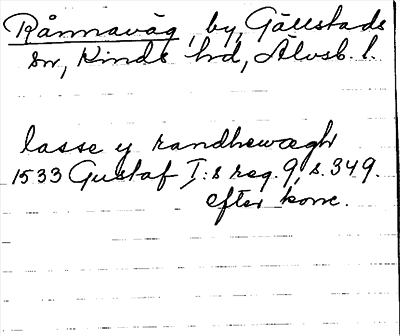 Rånnaväg, by, Gällstads
sn, Kinds hd, Älvsb. l.
lasse y randhewægh
1533 Gustaf I:s reg. 9, s. 349.
efter konc.